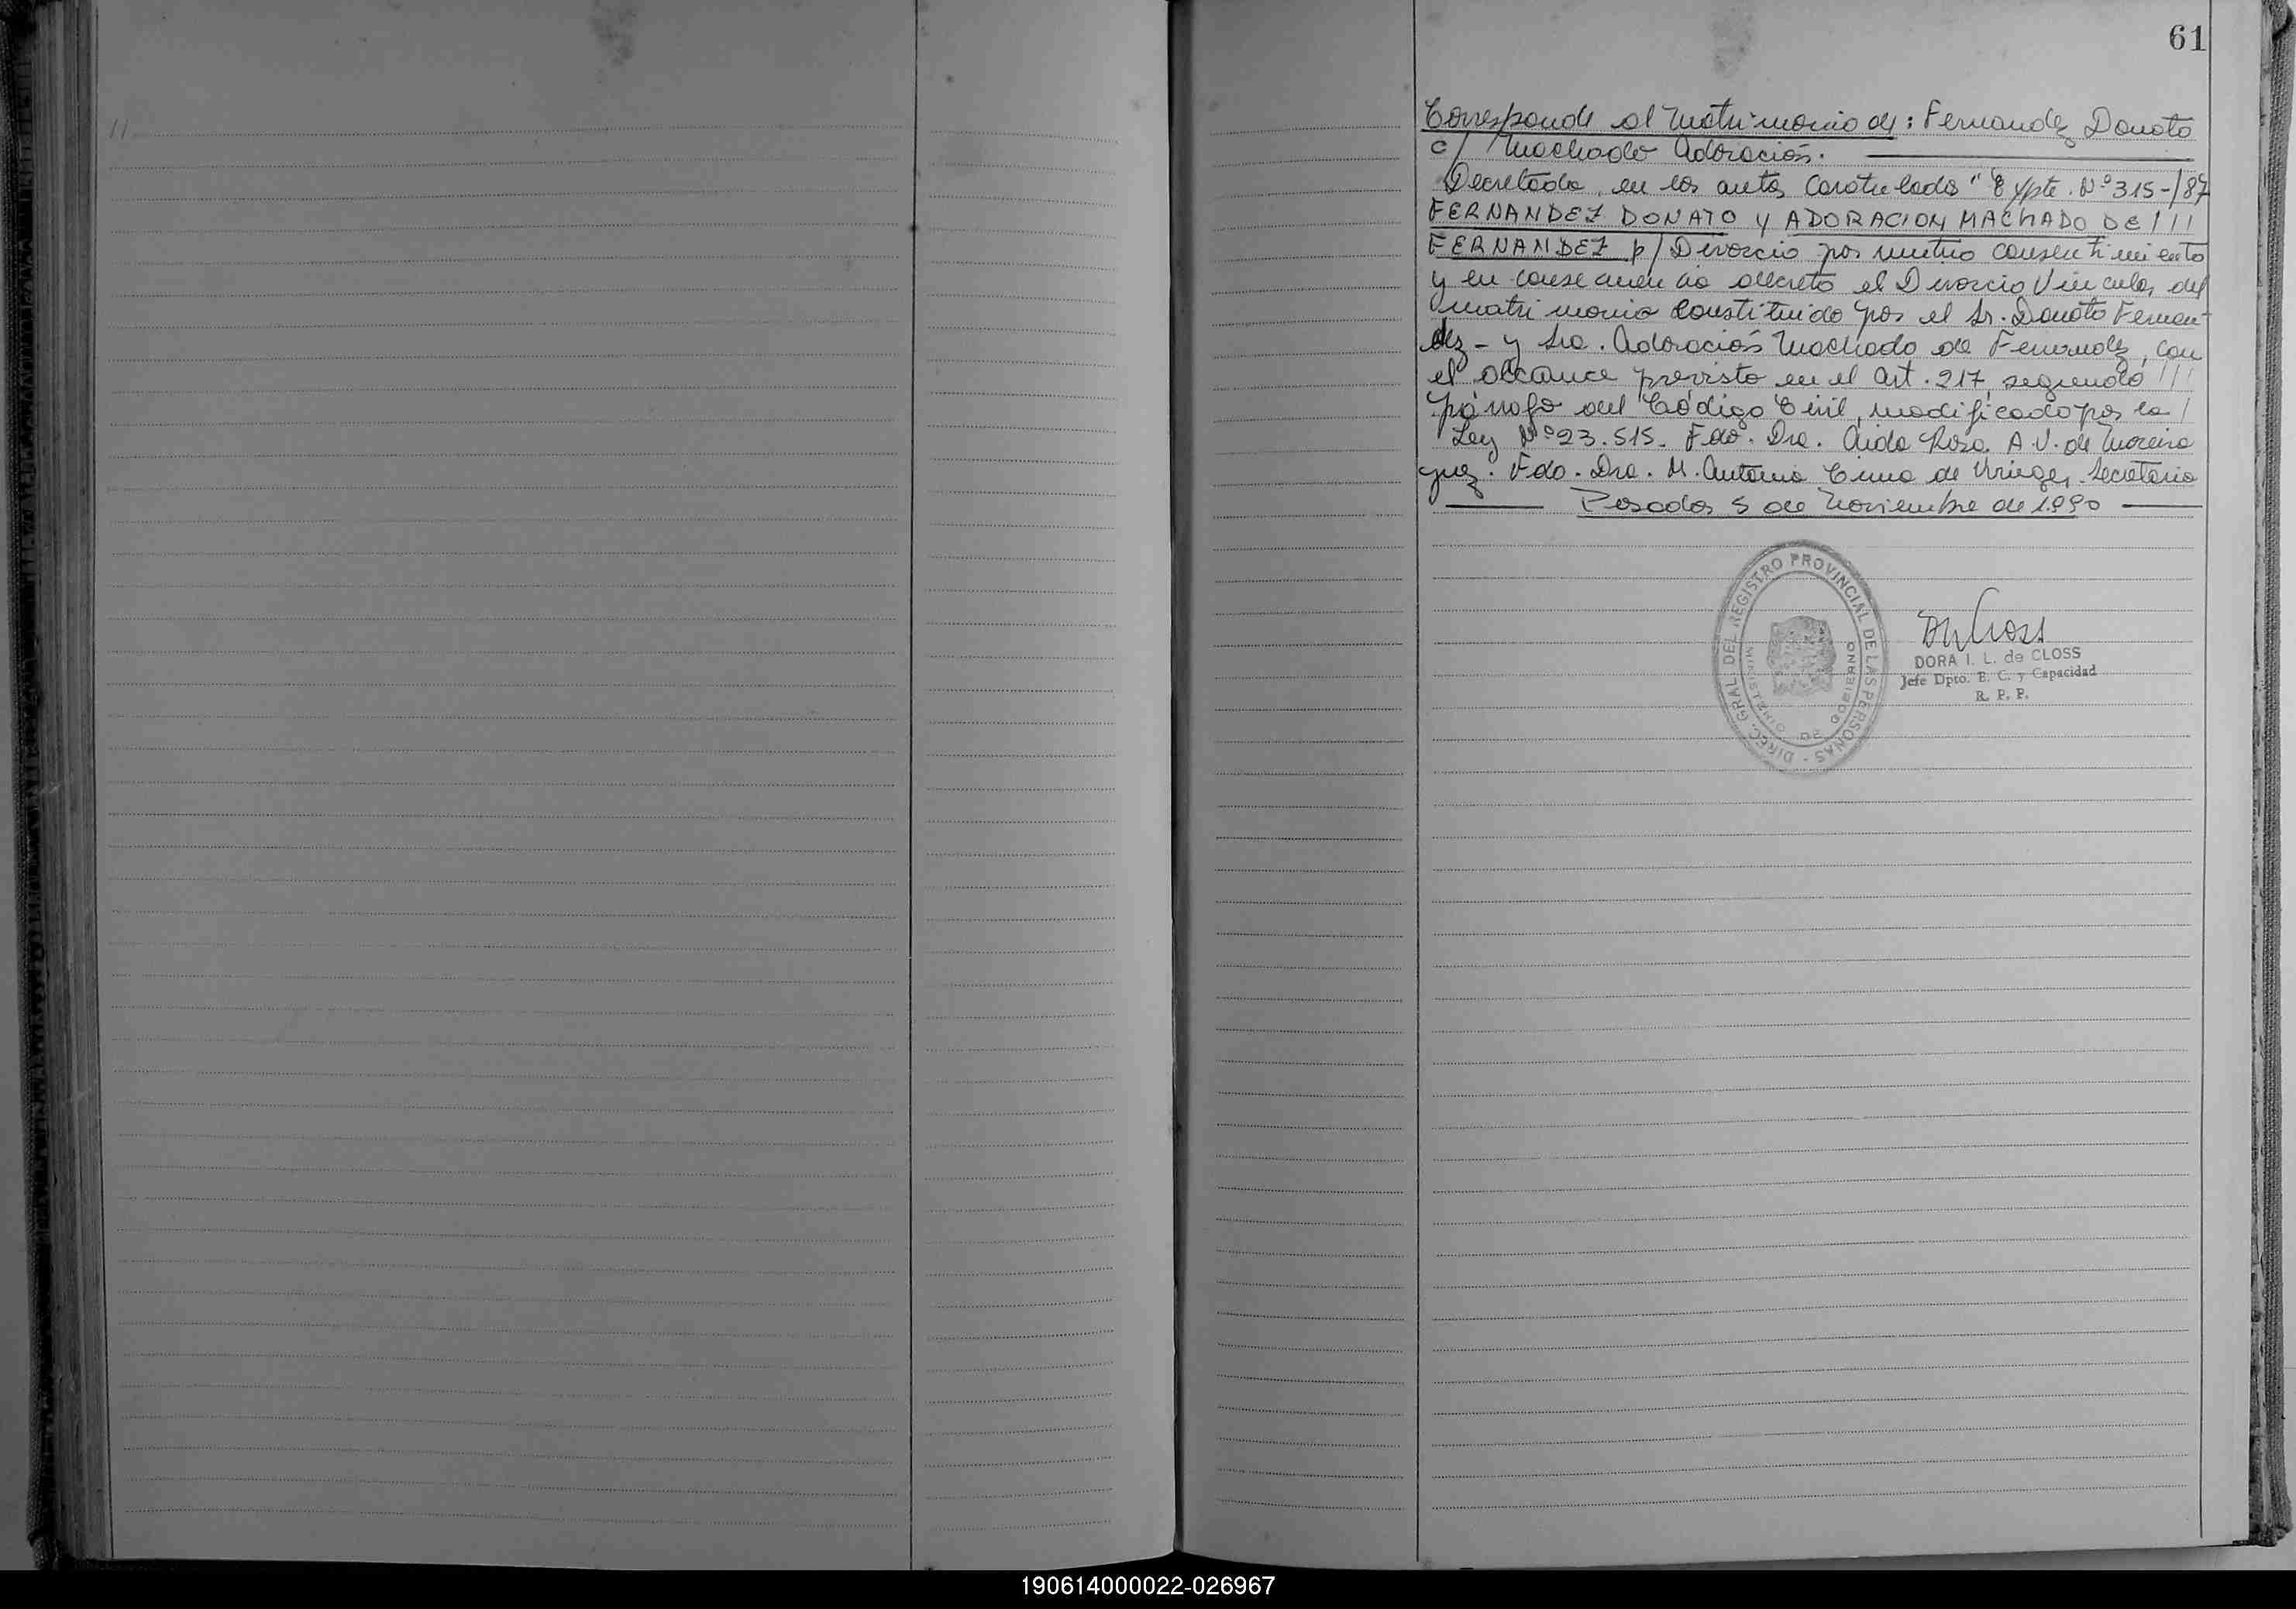 61
Corresponde al Matrimonio de: Fernandez Donato
c/ Machado Adoración.
Decretada en los autos Caratulados "Expte. Nº 315-/87
FERNANDEZ DONATO Y ADORACION MACHADO DE ///
FERNANDEZ p/ Divorcio por mutuo consentimiento
y en consecuencia decreto el Divorcio Vincular del
matrimonio constituido por el Sr. Donato Fernan-
dez - y Sra. Adoración Machado de Fernandez, con
el alcance previsto en el art. 217, segundo ///
párrafo del Código Civil, modificado por la /
Ley Nº 23.515. Fdo. Dra. Aida Rosa A.V. de Moreira
juez. Fdo. Dra. M. Antonia de Secretaria
Posadas 5 de Noviembre de 1.990
DIREC. GRAL. DEL REGISTRO PROVINCIAL DE LAS PERSONAS -
MINISTERIO DE GOBIERNO
DORA I. L. de CLOSS
Jefe Dpto. E. C. y Capacidad
R. P. P.
190614000022-026967